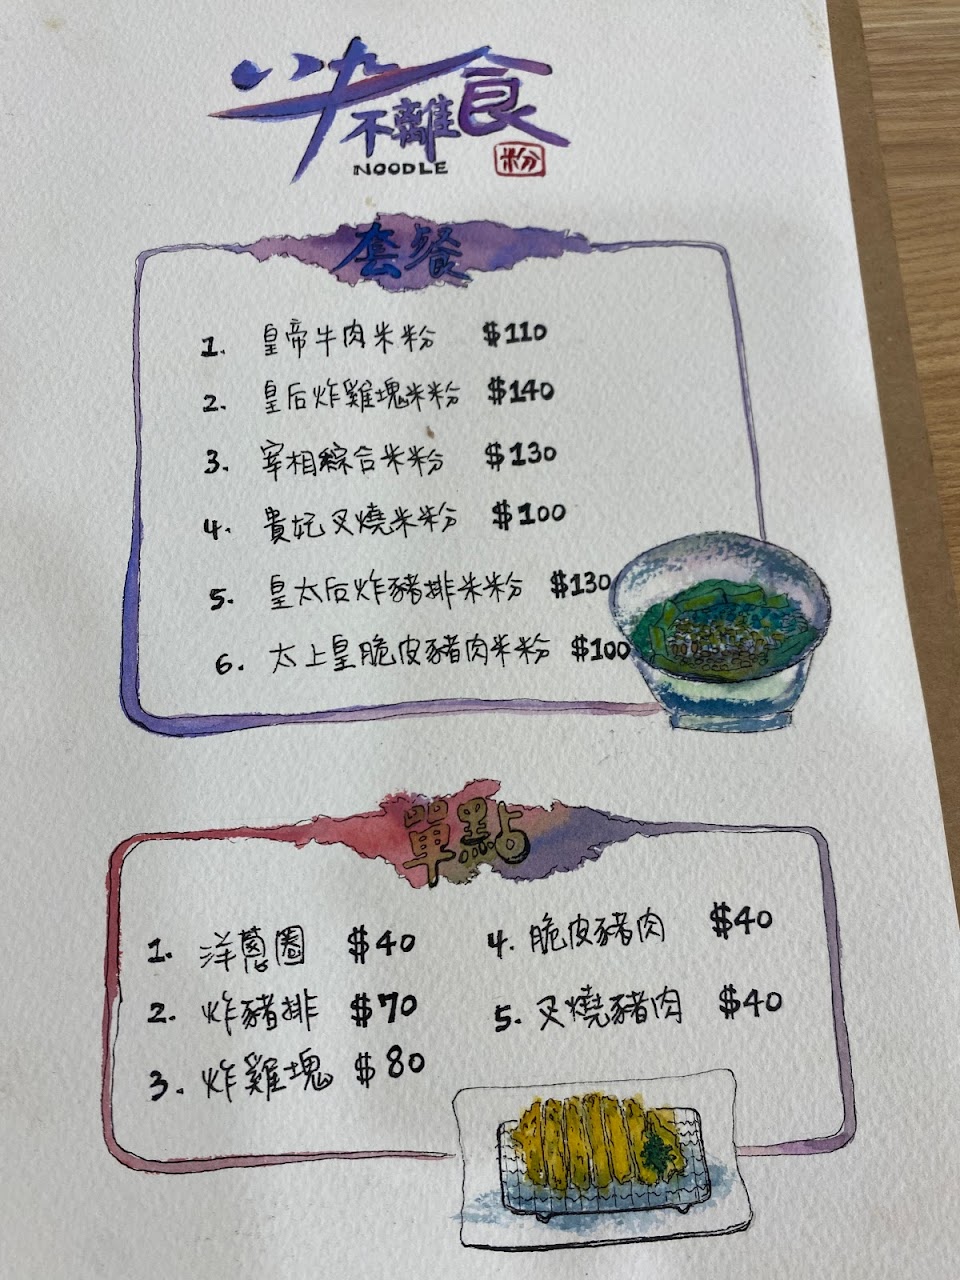 不離食
NOODLE
粉
套餐
1. 皇帝牛肉米粉 $110
2. 皇后炸雞塊米粉 $140
3. 宰相綜合米粉 $130
4. 貴妃叉燒米粉 $100
5. 皇太后炸豬排米粉 $130
6. 太上皇脆皮豬肉米粉 $100
單點
1. 洋蔥圈 $40
2. 炸豬排 $70
3. 炸雞塊 $80
4. 脆皮豬肉 $40
5. 叉燒豬肉 $40